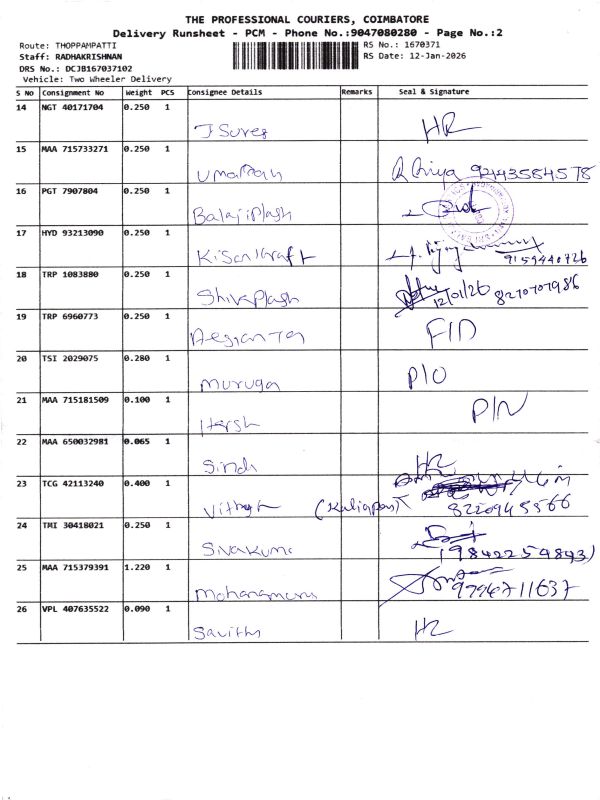 THE PROFESSIONAL COURIERS, COIMBATORE
Delivery Runsheet - PCM - Phone No.:9047080280 - Page No.:2
Route: THOPPAMPATTI RS No.: 1670371
Staff: RADHAKRISHNAN RS Date: 12-Jan-2026
DRS No.: DCJB167037102
Vehicle: Two Wheeler Delivery
S No Consignment No Weight PCS Consignee Details Remarks Seal & Signature
14 NGT 40171704 0.250 1
J Sures HR
15 MAA 715733271 0.250 1
Priya 92443584578
16 PGT 7907804 0.250 1
Balajiplash
17 HYD 93213090 0.250 1
Kisankraft
9159440726
18 TRP 1083880 0.250 1
Shivaplash 12/01/26 8270707986
19 TRP 6960773 0.250 1
F/D
20 TSI 2029075 0.280 1
Muruga P/O
21 MAA 715181509 0.100 1
Harsh P/N
22 MAA 650032981 0.065 1
Sindh HR
23 TCG 42113240 0.400 1
(Kaliapan) 8220945566
24 TMI 30418021 0.250 1
Sivakuma (9842259843)
25 MAA 715379391 1.220 1
9796711637
26 VPL 407635522 0.090 1
Savith HR